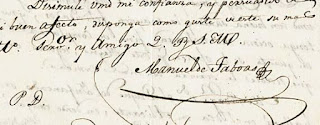 Disimule Vmd mi confianza, y es persuadir
i buen afecto, disponga como guste vuestro su ma
or Serv.or y Amigo Q. B. S. M.
Manuel de Taboas
P. D.